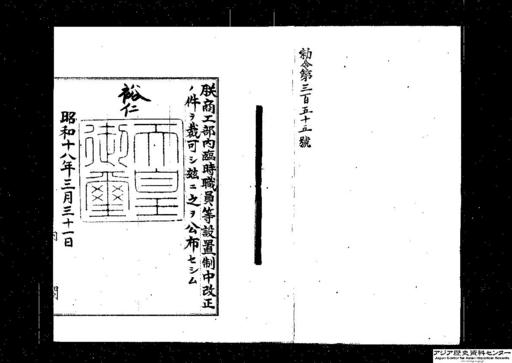 勅令第三百五十五號
朕商工部内臨時職員等設置制中改正
ノ件ヲ裁可シ玆ニ之ヲ公布セシム
裕仁
天皇御璽
昭和十八年三月三十一日
アジア歴史資料センター
Japan Center for Asian Historical Records